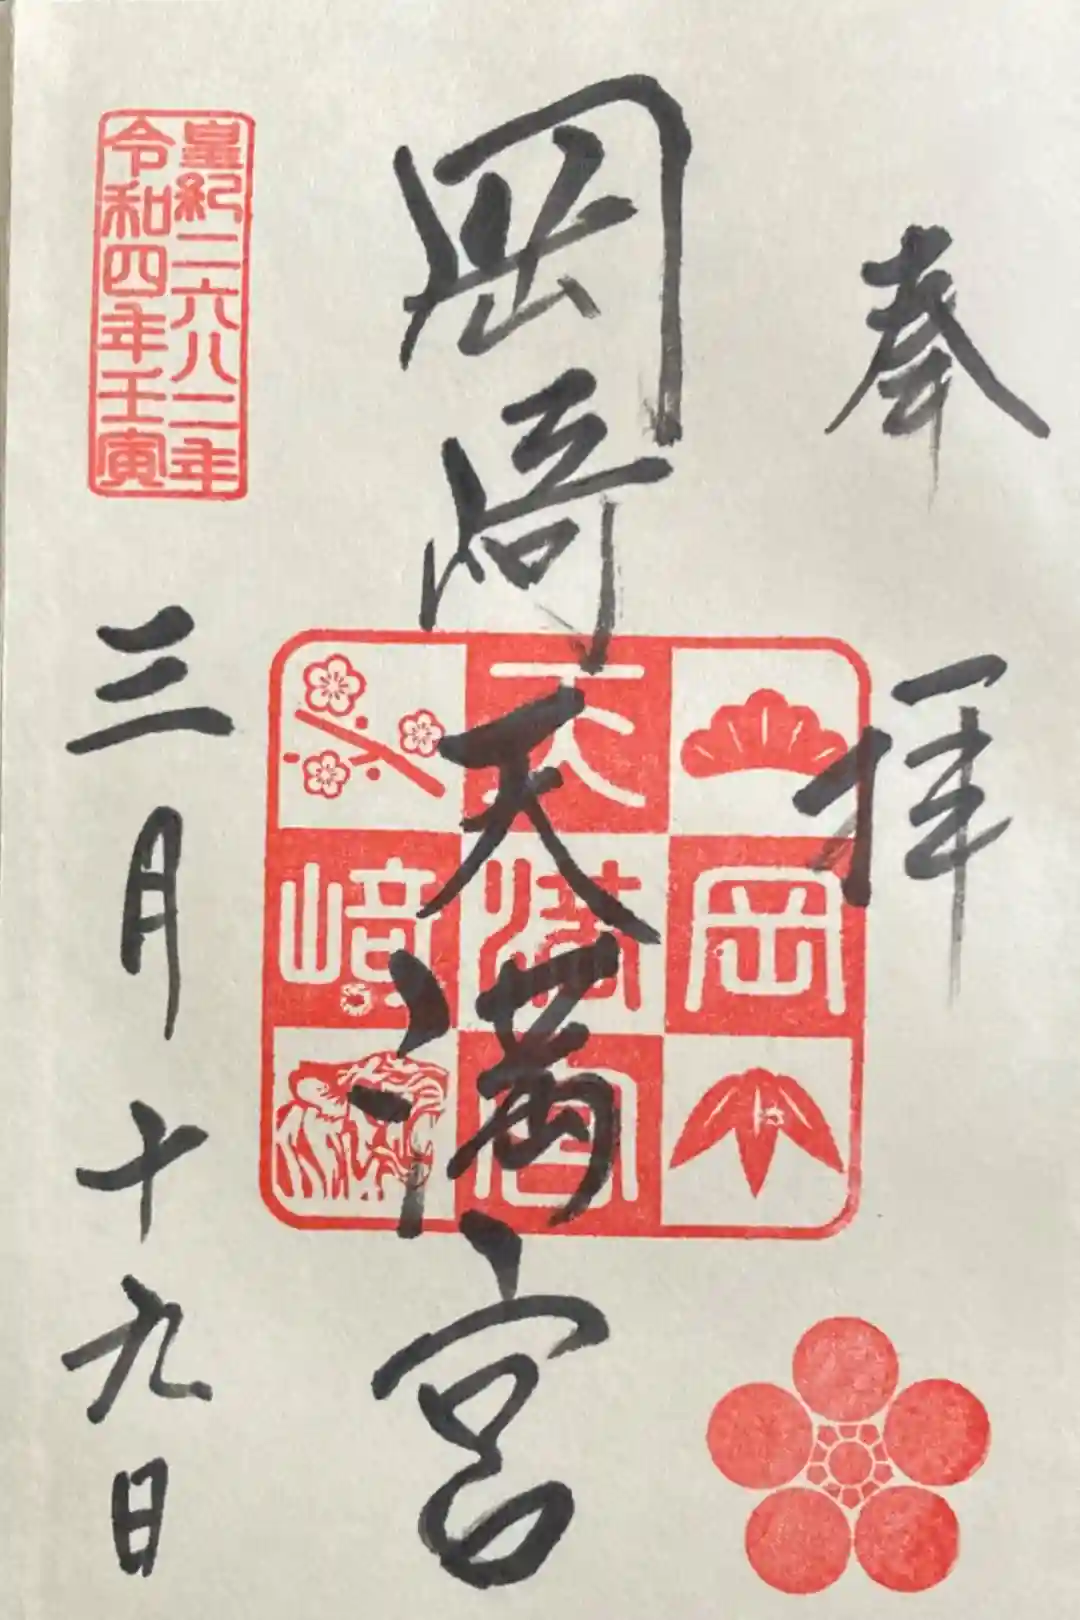 奉拝
岡﨑天満宮
岡﨑
天満宮
皇紀二六八二年
令和四年壬寅
三月十九日